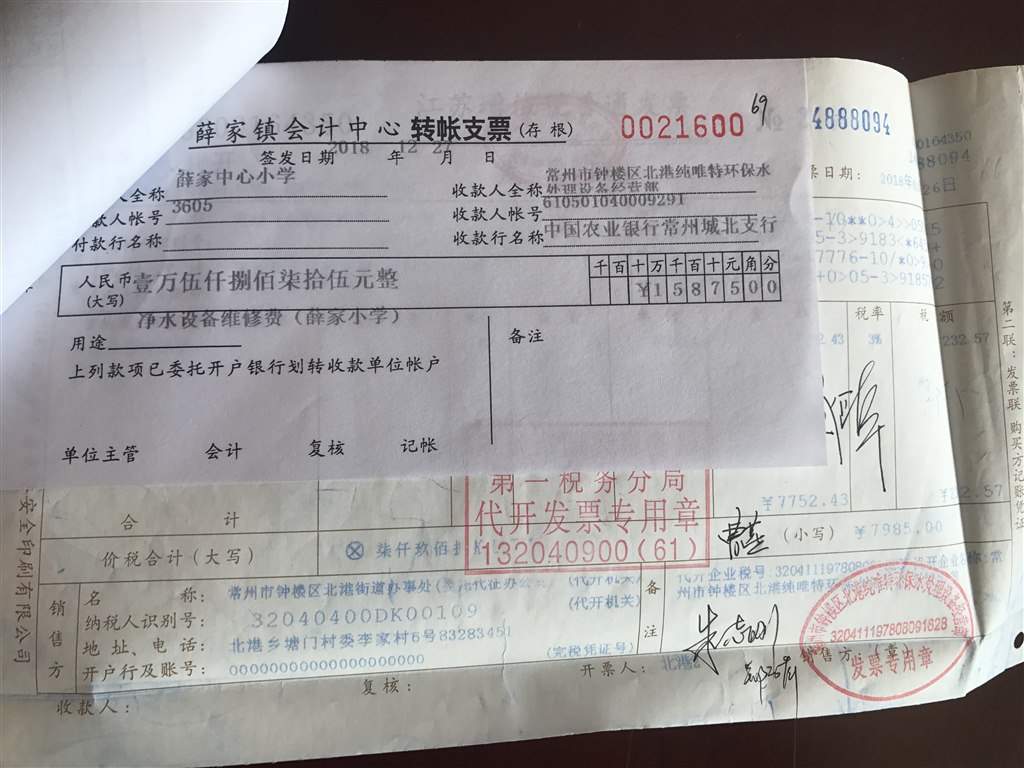 薛家镇会计中心 转帐支票 (存根) 0021600 69
签发日期 2018 年 12 27 月 日
人全称 薛家中心小学
收款人全称 常州市钟楼区北港纯唯特环保水处理设备经营部
款人帐号 3605
收款人帐号 610501040009291
付款行名称
收款行名称 中国农业银行常州城北支行
人民币(大写) 壹万伍仟捌佰柒拾伍元整
千百十万千百十元角分
¥1587500
用途 净水设备维修费（薛家小学）
备注
上列款项已委托开户银行划转收款单位帐户
单位主管 会计 复核 记帐
№ 24888094
00164350
88094
票日期: 2018年 26日
税率 税 额
3% 232.57
第二联：发票联 购买方记账凭证
第一税务分局
代开发票专用章
132040900(61)
合 计 ¥7752.43 ¥232.57
价税合计（大写） ⊗ 柒仟玖佰 （小写） ¥7985.00
销售方
名 称: 常州市钟楼区北港街道办事处 (代开机关)
纳税人识别号: 32040400DK00109 (代开机关)
地 址、电 话: 北港乡塘门村委李家村6号83283451
开户行及账号: 0000000000000000000000 (完税凭证号)
备注
代开企业税号:320411197808
代开企业名称:常
州市钟楼区北港纯唯特环保水处理设备经营部
320411197808091628
发票专用章
朱志明
收款人: 复核: 开票人: 北港 销售方:（章）
安全印刷有限公司